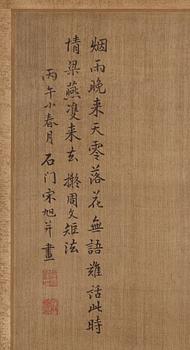 烟雨晚来天零落花無語難話此時
情梁燕雙來去 擬周文矩法
丙午小春月石门宋旭并畫